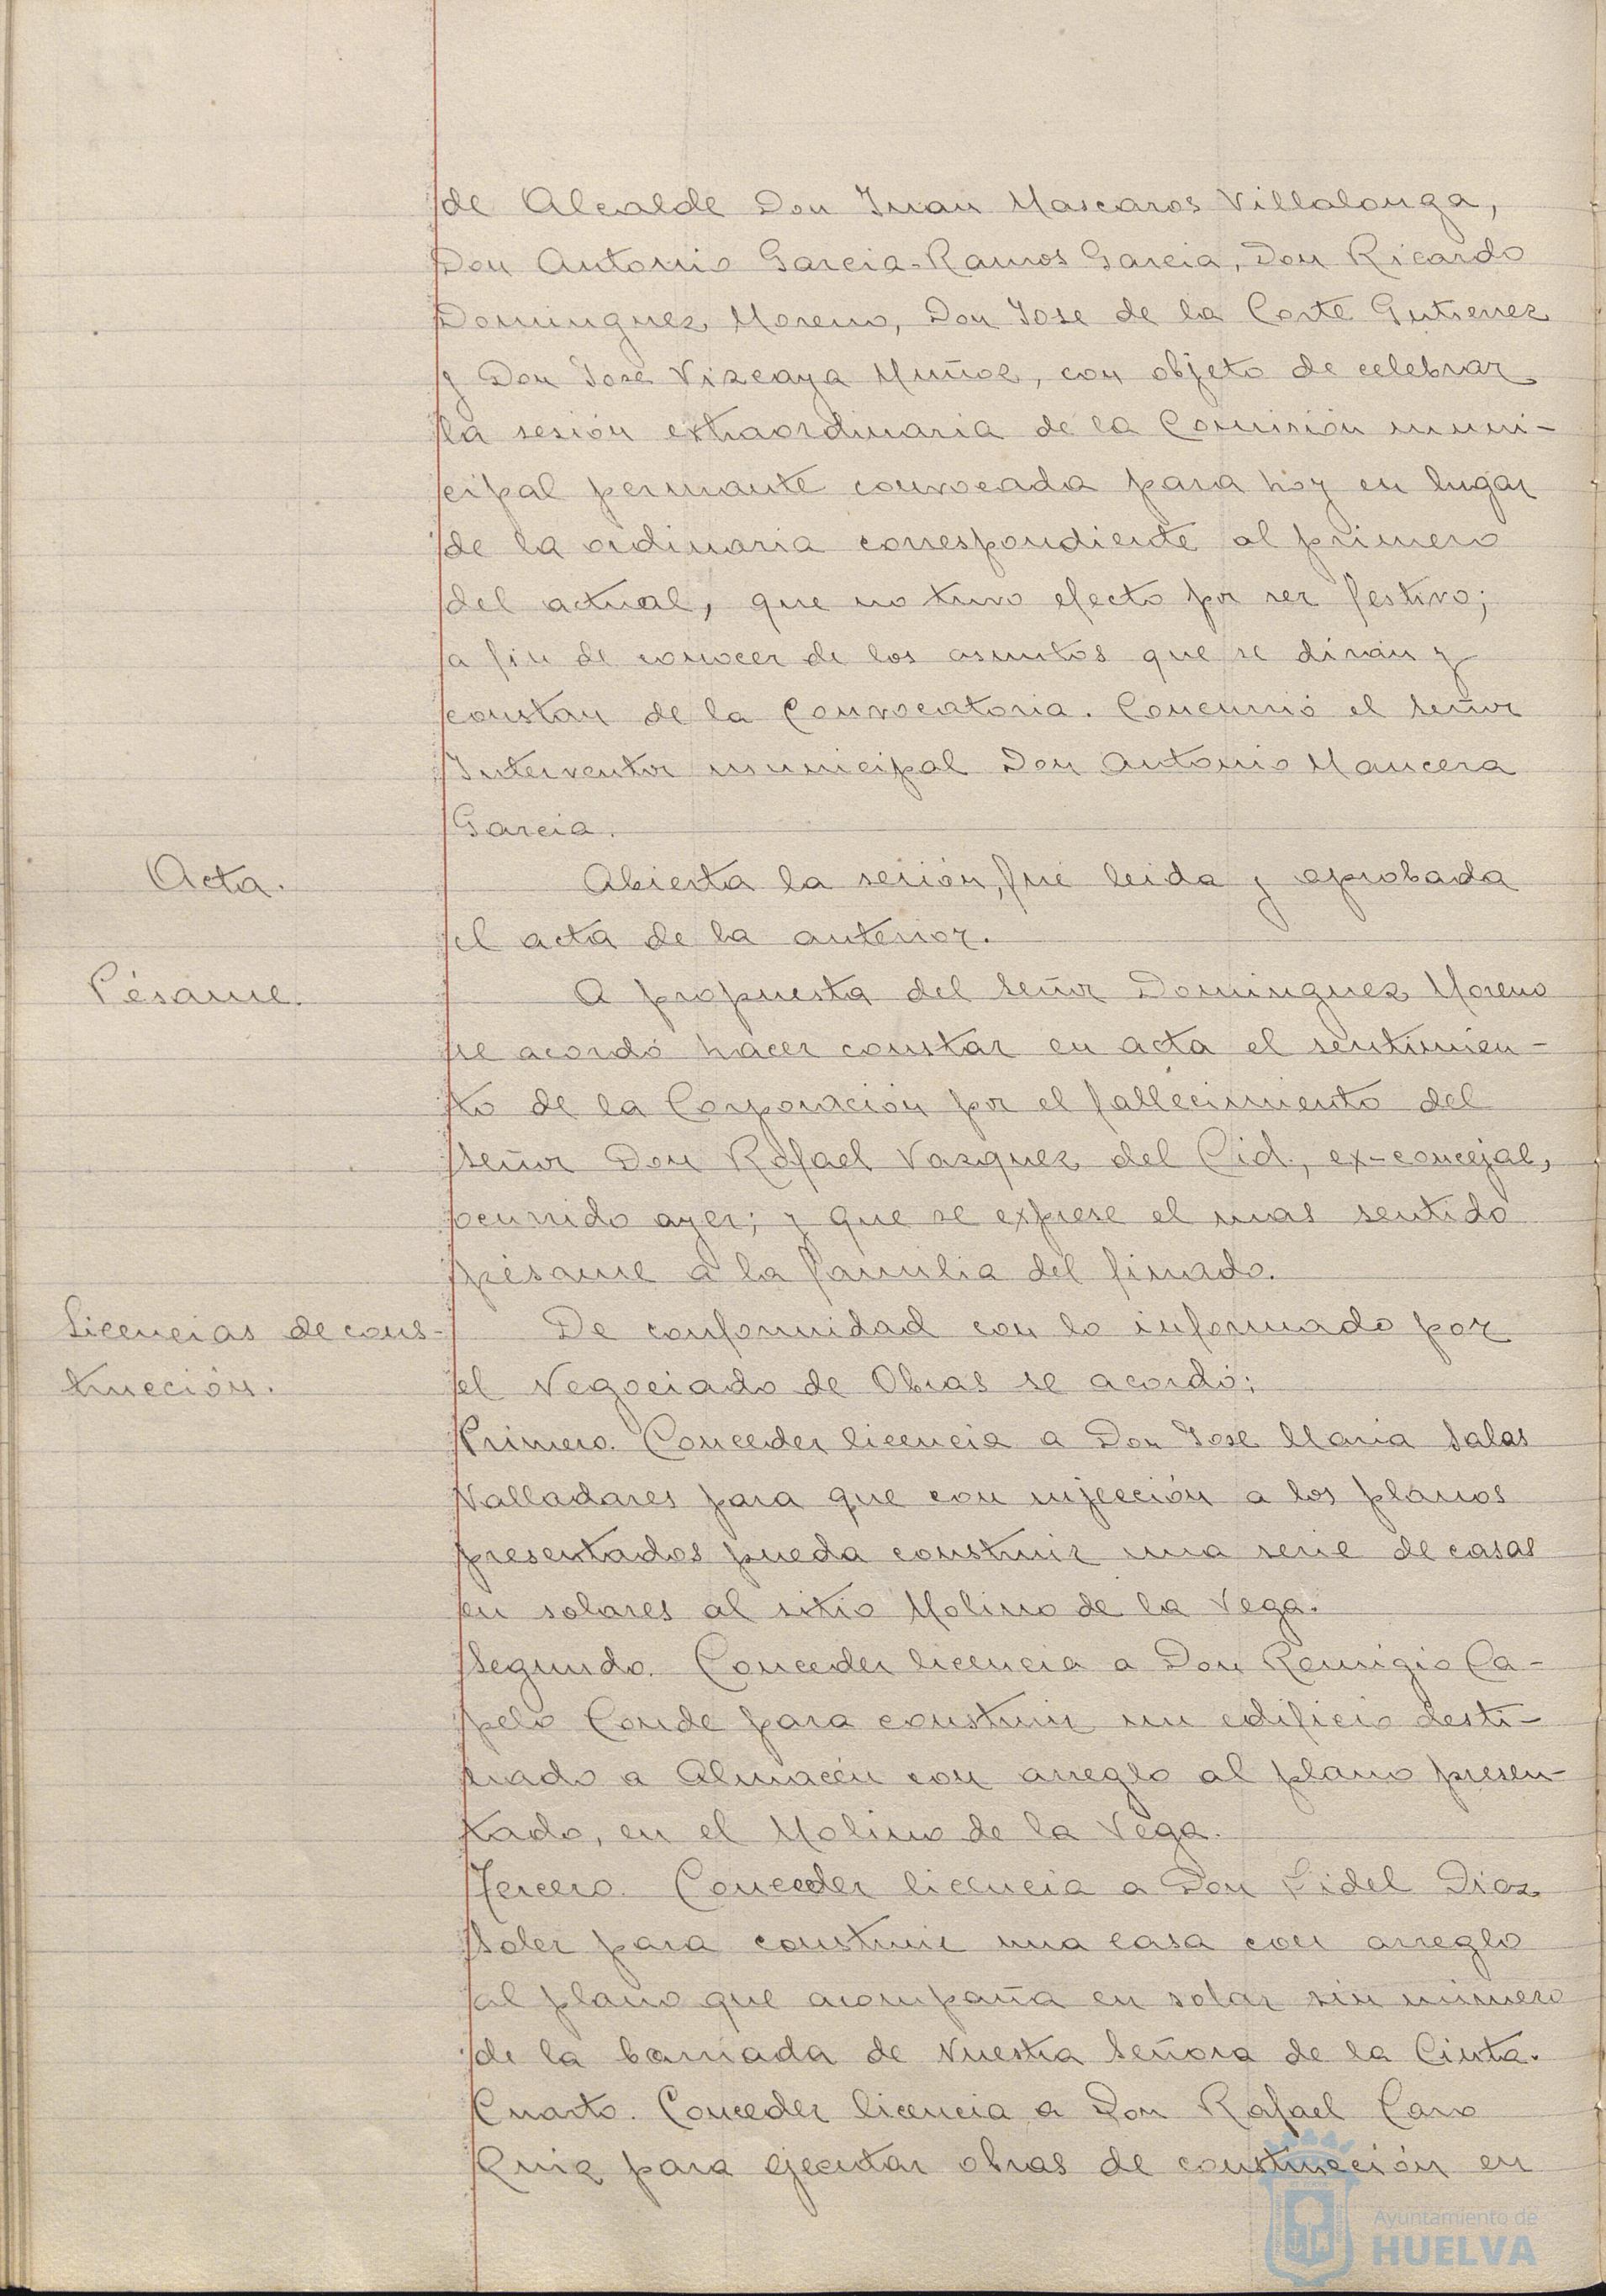 de Alcalde Don Juan Mascaros Villalonga,
Don Antonio Garcia-Ramos Garcia, Don Ricardo
Dominguez Moreno, Don Jose de la Corte Gutierrez
y Don José Vizcaya Muñoz, con objeto de celebrar
la sesión extraordinaria de la Comisión muni-
cipal permante convocada para hoy en lugar
de la ordinaria correspondiente al primero
del actual, que no tuvo efecto por ser festivo;
a fin de conocer de los asuntos que se dirán y
constan de la Convocatoria. Concurrió el Señor
Interventor municipal Don Antonio Mancera
Garcia.
Acta.
Abierta la sesión, fué leida y aprobada
el acta de la anterior.
Pésame.
A propuesta del Señor Dominguez Moreno
se acordó hacer constar en acta el sentimien-
to de la Corporación por el fallecimiento del
Señor Don Rafael Vazquez del Cid, ex-concejal,
ocurrido ayer; y que se exprese el mas sentido
pésame a la familia del finado.
Licencias de cons-
trucción.
De conformidad con lo informado por
el Negociado de Obras se acordó:
Primero. Conceder licencia a Don Jose Maria Salas
Valladares para que con sujección a los planos
presentados pueda construir una serie de casas
en solares al sitio Molino de la Vega.
Segundo. Conceder licencia a Don Remigio Ca-
pelo Conde para construir un edificio desti-
nado a Almacén con arreglo al plano presen-
tado, en el Molino de la Vega.
Tercero. Conceder licencia a Don Fidel Diaz
Soler para construir una casa con arreglo
al plano que acompaña en solar sin número
de la barriada de Nuestra Señora de la Cinta.
Cuarto. Conceder licencia a Don Rafael Caro
Ruiz para ejecutar obras de construcción en
Ayuntamiento de
HUELVA